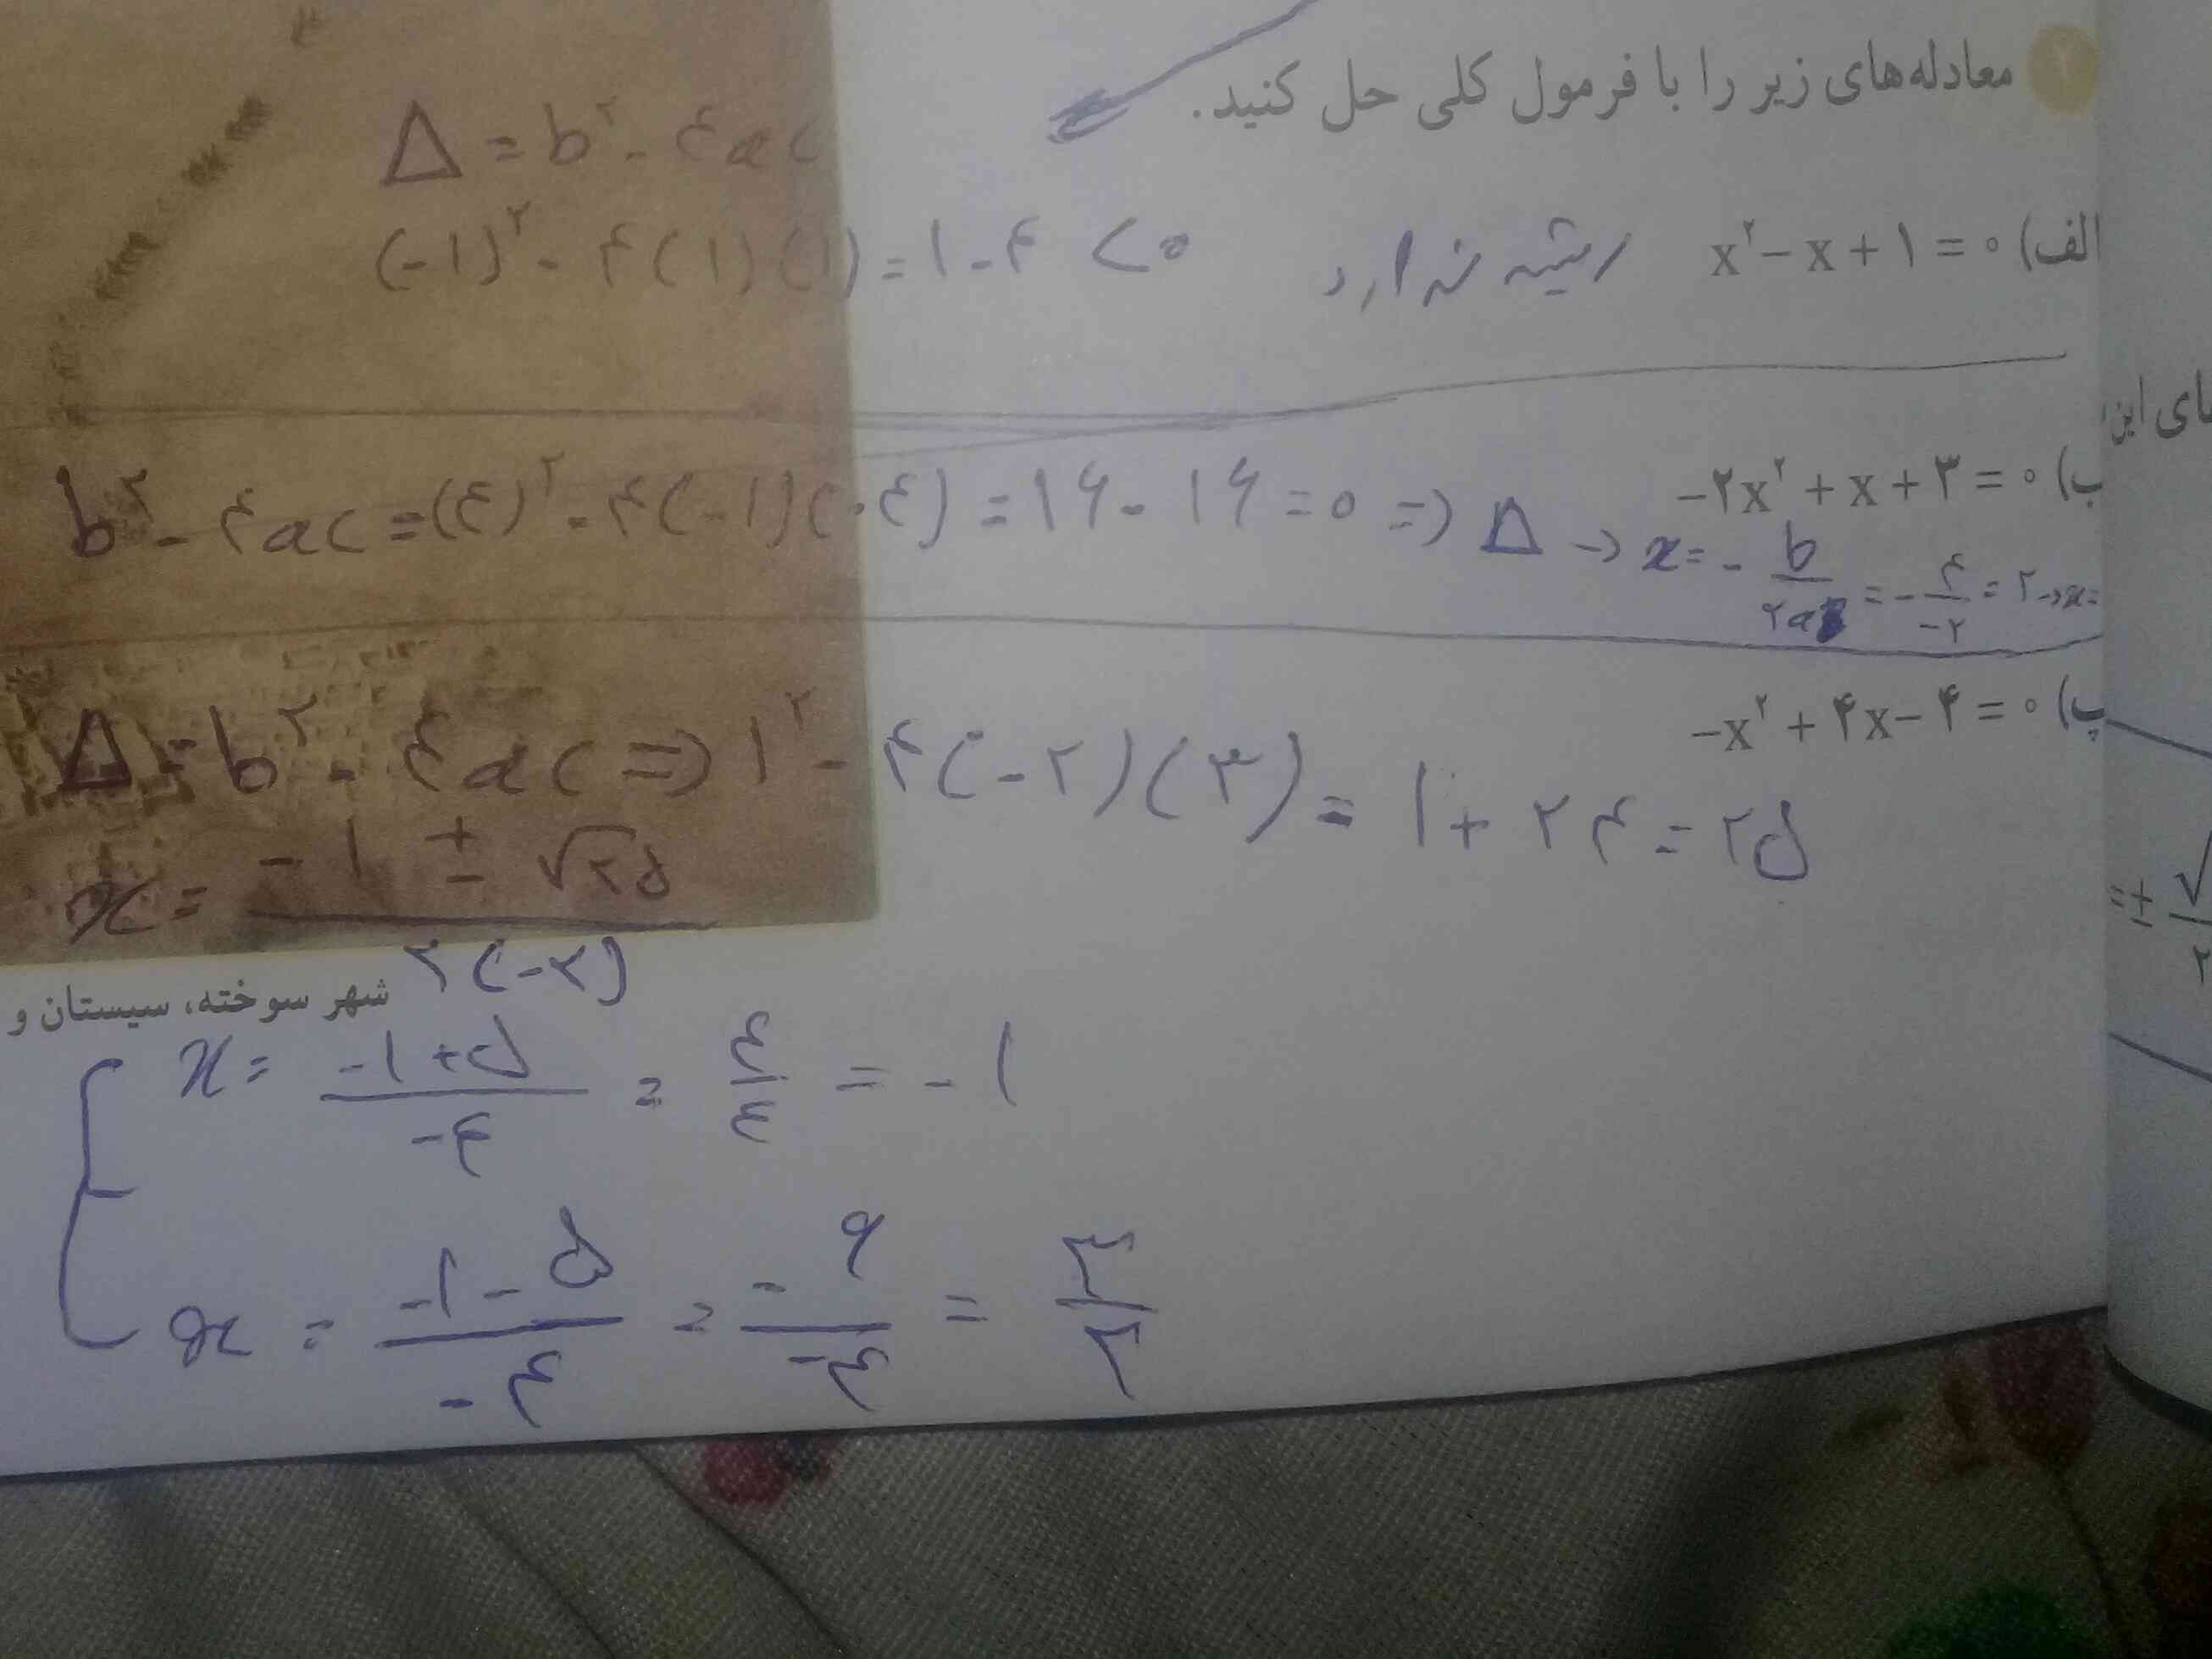 معادله‌های زیر را با فرمول کلی حل کنید.
Δ = b² - ۴ac
الف) x² - x + ۱ = ۰ ریشه ندارد
(-۱)² - ۴(۱)(۱) = ۱ - ۴ < ۰
ب) -۲x² + x + ۳ = ۰
b² - ۴ac = (۴)² - ۴(-۱)(-۴) = ۱۶ - ۱۶ = ۰ ⇒ Δ → x = - b/۲a = - ۴/-۲ = ۲ → x =
پ) -x² + ۴x - ۴ = ۰
Δ = b² - ۴ac ⇒ ۱² - ۴(-۲)(۳) = ۱ + ۲۴ = ۲۵
x = -۱ ± √۲۵ / ۲(-۲)
شهر سوخته، سیستان و
x = -۱+۵ / -۴ = ۴/۴ = -۱
x = -۱-۵ / -۴ = -۶/-۴ = ۳/۲
های این
= ± √ / ۲